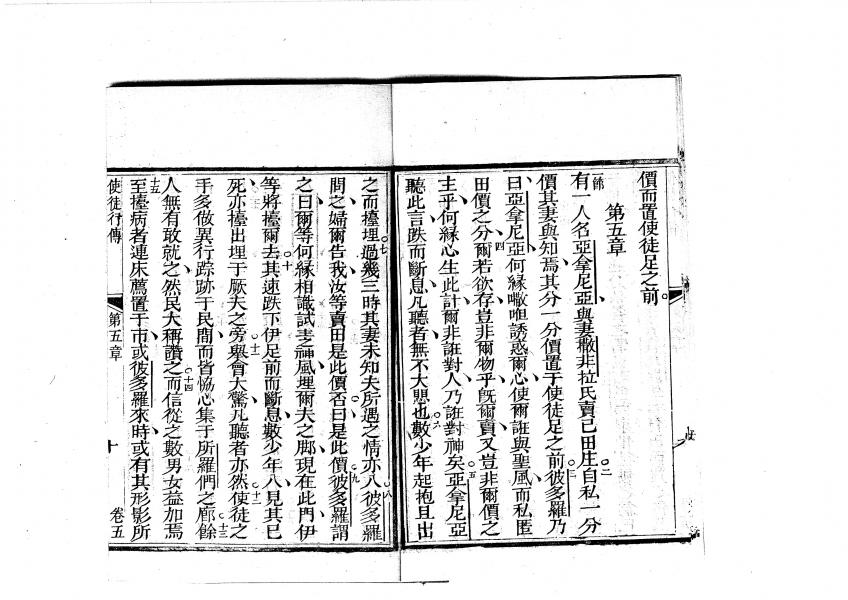 價而置使徒足之前。
第五章
第一節有一人名亞拿尼亞與妻撒非拉氏賣己田庄自私一分
價其妻與知焉其分一分價置于使徒足之前彼多羅乃
曰亞拿尼亞何緣嗽咀誘惑爾心使爾誑與聖風而私匿
田價之分爾若欲存豈非爾物乎既爾賣又豈非爾價之
主乎何緣心生此計爾非誑對人乃誑對神矣亞拿尼亞
聽此言跌而斷息凡聽者無不大懼也數少年起抱且出
之而擡埋過幾三時其妻未知夫所遇之情亦入彼多羅
問之婦爾告我汝等賣田是此價否曰是此價彼多羅謂
之曰爾等何緣相識試主之神風埋爾夫之脚現在此門伊
等將擡爾去其速跌下伊足前而斷息數少年入見其已
死亦擡出埋于厥夫之旁舉會大驚凡聽者亦然使徒之
手多做異行踪跡于民間而皆恊心集于所羅們之廊餘
人無有敢就之然民大稱讚之而信從之數男女益加焉
至擡病者連床薦置于市或彼多羅來時或有其形影所
使徒行傳 第五章 十 卷五